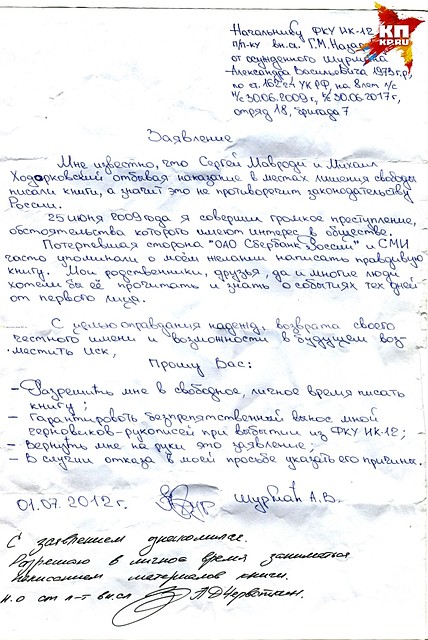 КП
KP.RU
Начальнику ФКУ ИК-12
п/п-ку вн.сл. Г.М.
от осуждённого Шурмана
Александра Васильевича 1973 г.р.,
по ст. 162 ч.4 УК РФ, на 8 лет л/с
н/с 30.06.2009 г., к/с 30.06.2017 г.,
отряд 18, бригада 7
Заявление
Мне известно, что Сергей Мавроди и Михаил
Ходорковский отбывая наказание в местах лишения свободы
писали книги, а значит это не противоречит законодательству
России.
25 июня 2009 года я совершил громкое преступление,
обстоятельства которого имеют интерес в обществе.
Потерпевшая сторона "ОАО Сбербанк России" и СМИ
часто упоминали о моём желании написать правдивую
книгу. Мои родственники, друзья, да и многие люди
хотели бы её прочитать и знать о событиях тех дней
от первого лица.
С целью оправдания надежд, возврата своего
честного имени и возможности в будущем воз
местить иск,
Прошу Вас:
– Разрешить мне в свободное, личное время писать
книгу;
– Гарантировать беспрепятственный вынос мной
черновиков-рукописей при выбытии из ФКУ ИК-12;
– Вернуть мне на руки это заявление;
– В случии отказа в моей просьбе указать его причины.
01.07.2012 г. Шурман А.В.
С заявлением ознакомился.
Разрешаю в личное время заниматься
написанием материалов книги.
н.о ст л-т вн.сл